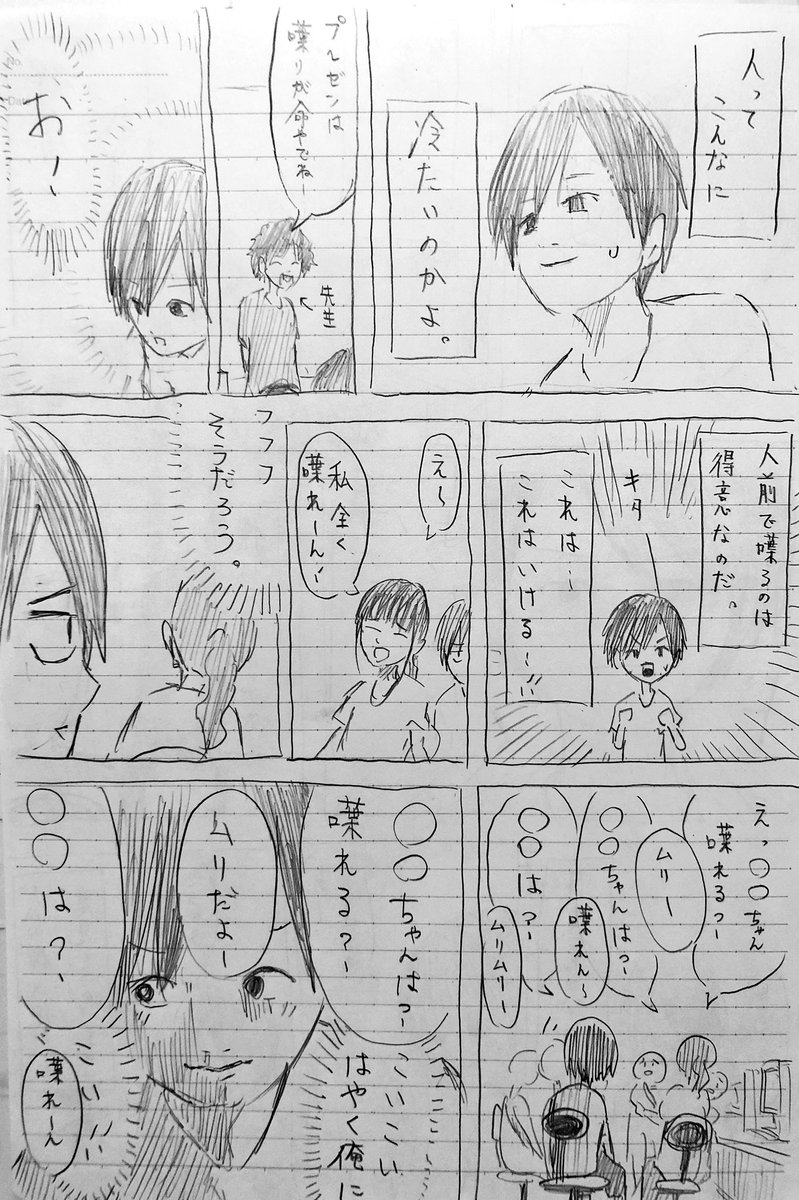 人って
こんなに
冷たいのかよ。
プレゼンは
喋りが命やでねー
←先生
おー
人前で喋るのは
得意なのだ。
キタ
これは…
これはいける〜!!!
え〜
私全く
喋れーんー
フフフ
そうだろう。
えっ〇〇ちゃん
喋れるっー
ムリー
〇〇ちゃんはっー
喋れん〜
〇〇は?ー
ムリムリー
〇〇ちゃんはっー
喋れる?ー
ムリだよー
〇〇は?ー
喋れーん
こいこい
はやく俺に
こい!!!